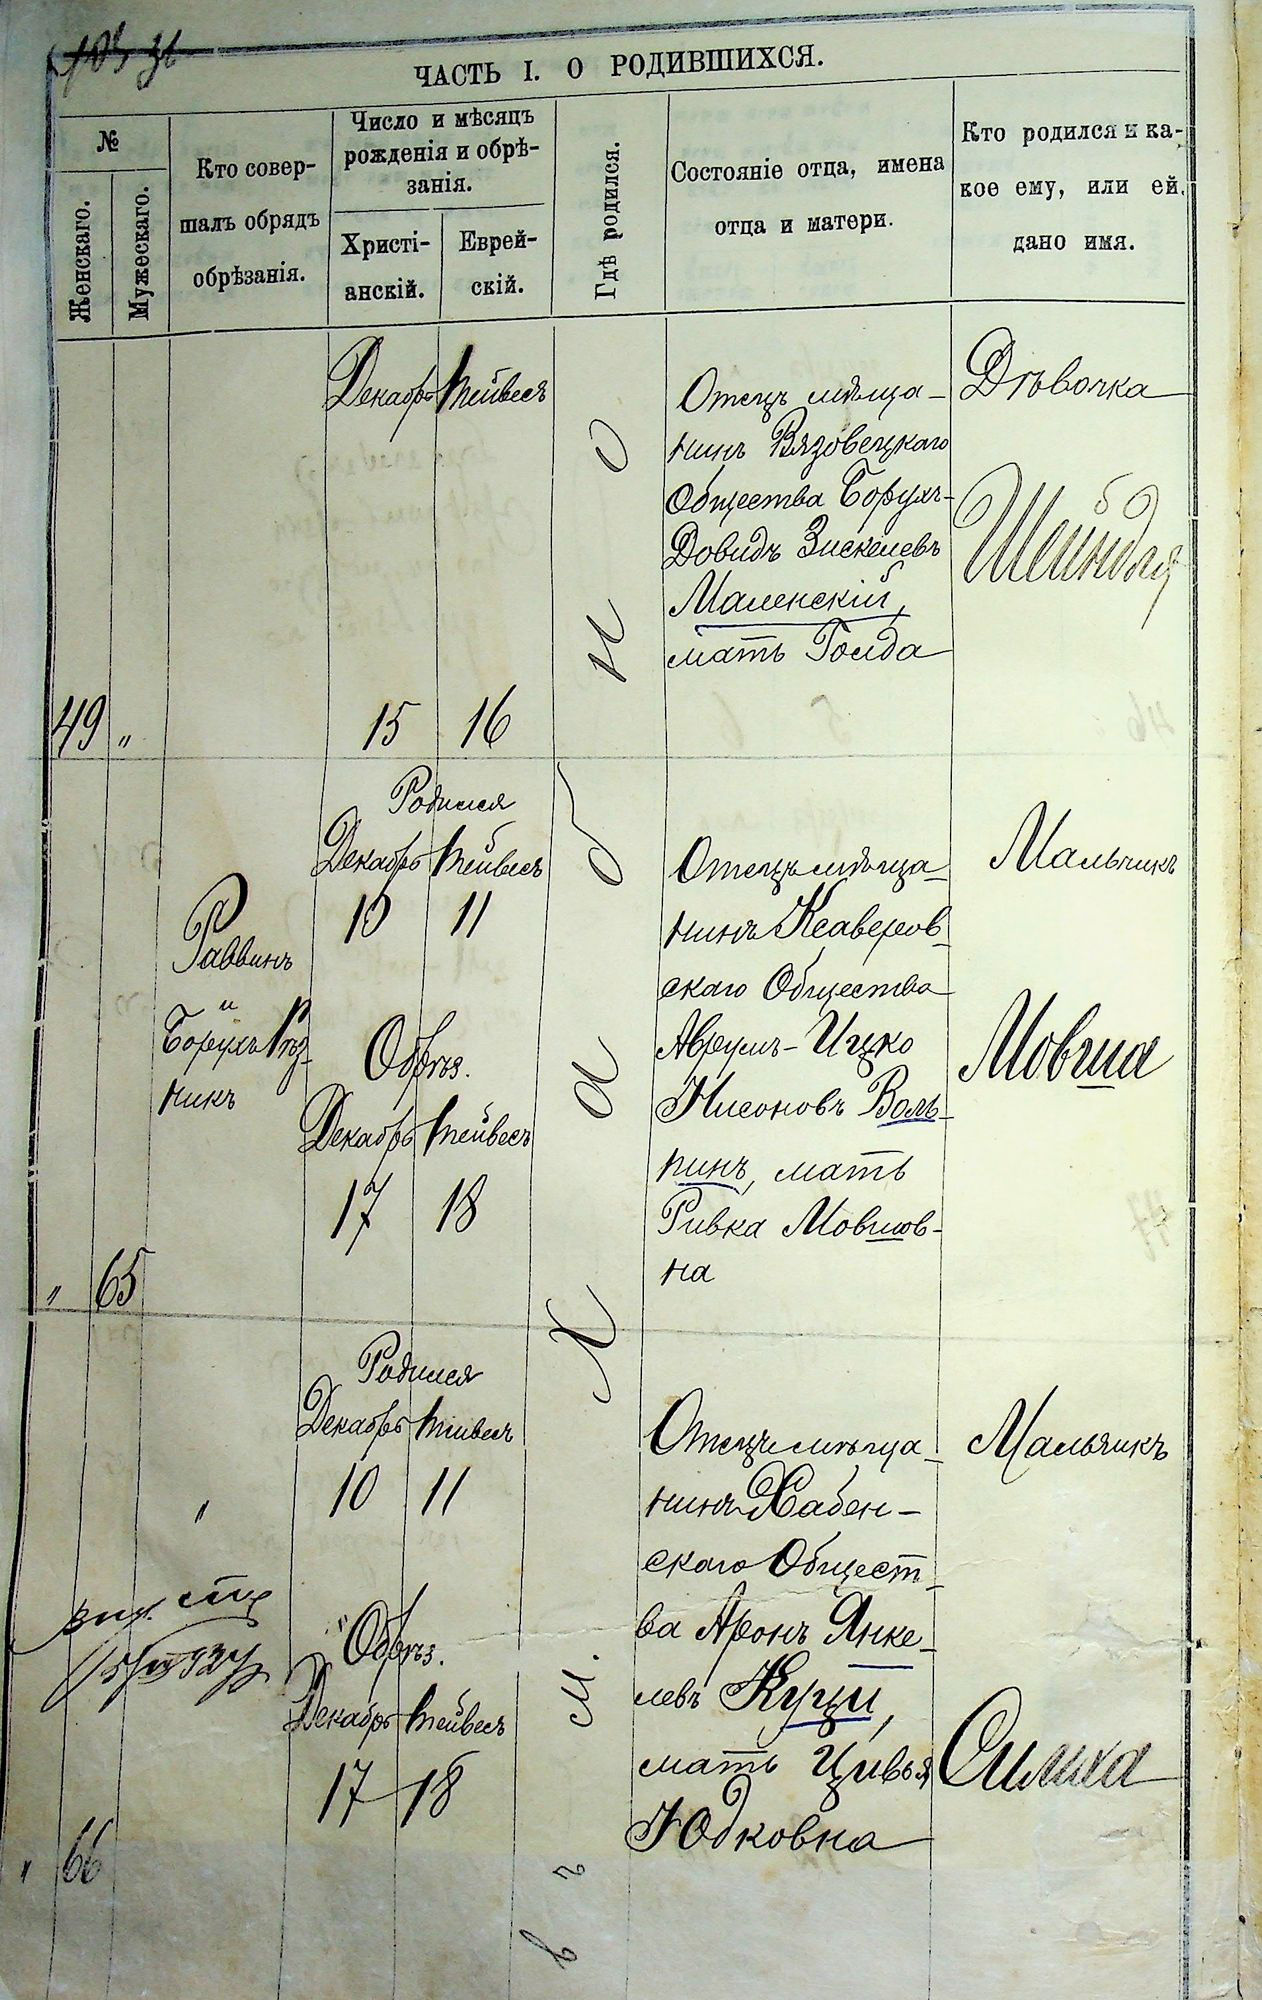 ЧАСТЬ I. О РОДИВШИХСЯ.
№
Женскаго.
Мужескаго.
Кто совер-
шалъ обрядъ
обрѣзанія.
Число и мѣсяцъ
рожденія и обрѣ-
занія.
Христі-
анскій.
Еврей-
скій.
Гдѣ родился.
Состояніе отца, имена
отца и матери.
Кто родился и ка-
кое ему, или ей,
дано имя.
въ м. Хабно
49 "
Декабрь Тейвесъ
15 16
Отецъ мѣща-
нинъ Вязовецкаго
Общества Борухъ-
Довидъ Зискелевъ
Маленскій,
мать Голда
Дѣвочка
Шейндля
" 65
Раввинъ
и
Борухъ
никъ
Родился
Декабрь Тейвесъ
10 11
Обрѣз.
Декабрь Тейвесъ
17 18
Отецъ мѣща-
нинъ
скаго Общества
Аврумъ-Ицко
Нисоновъ Воль-
пинъ, мать
Ривка Мовшов-
на
Мальчикъ
Мовша
" 66
"
Родился
Декабрь Тейвесъ
10 11
Обрѣз.
Декабрь Тейвесъ
17 18
Отецъ мѣща-
нинъ Хабен-
скаго Общест-
ва Аронъ Янке-
левъ Куци,
мать Цивья
Юдковна
Мальчикъ
Симха